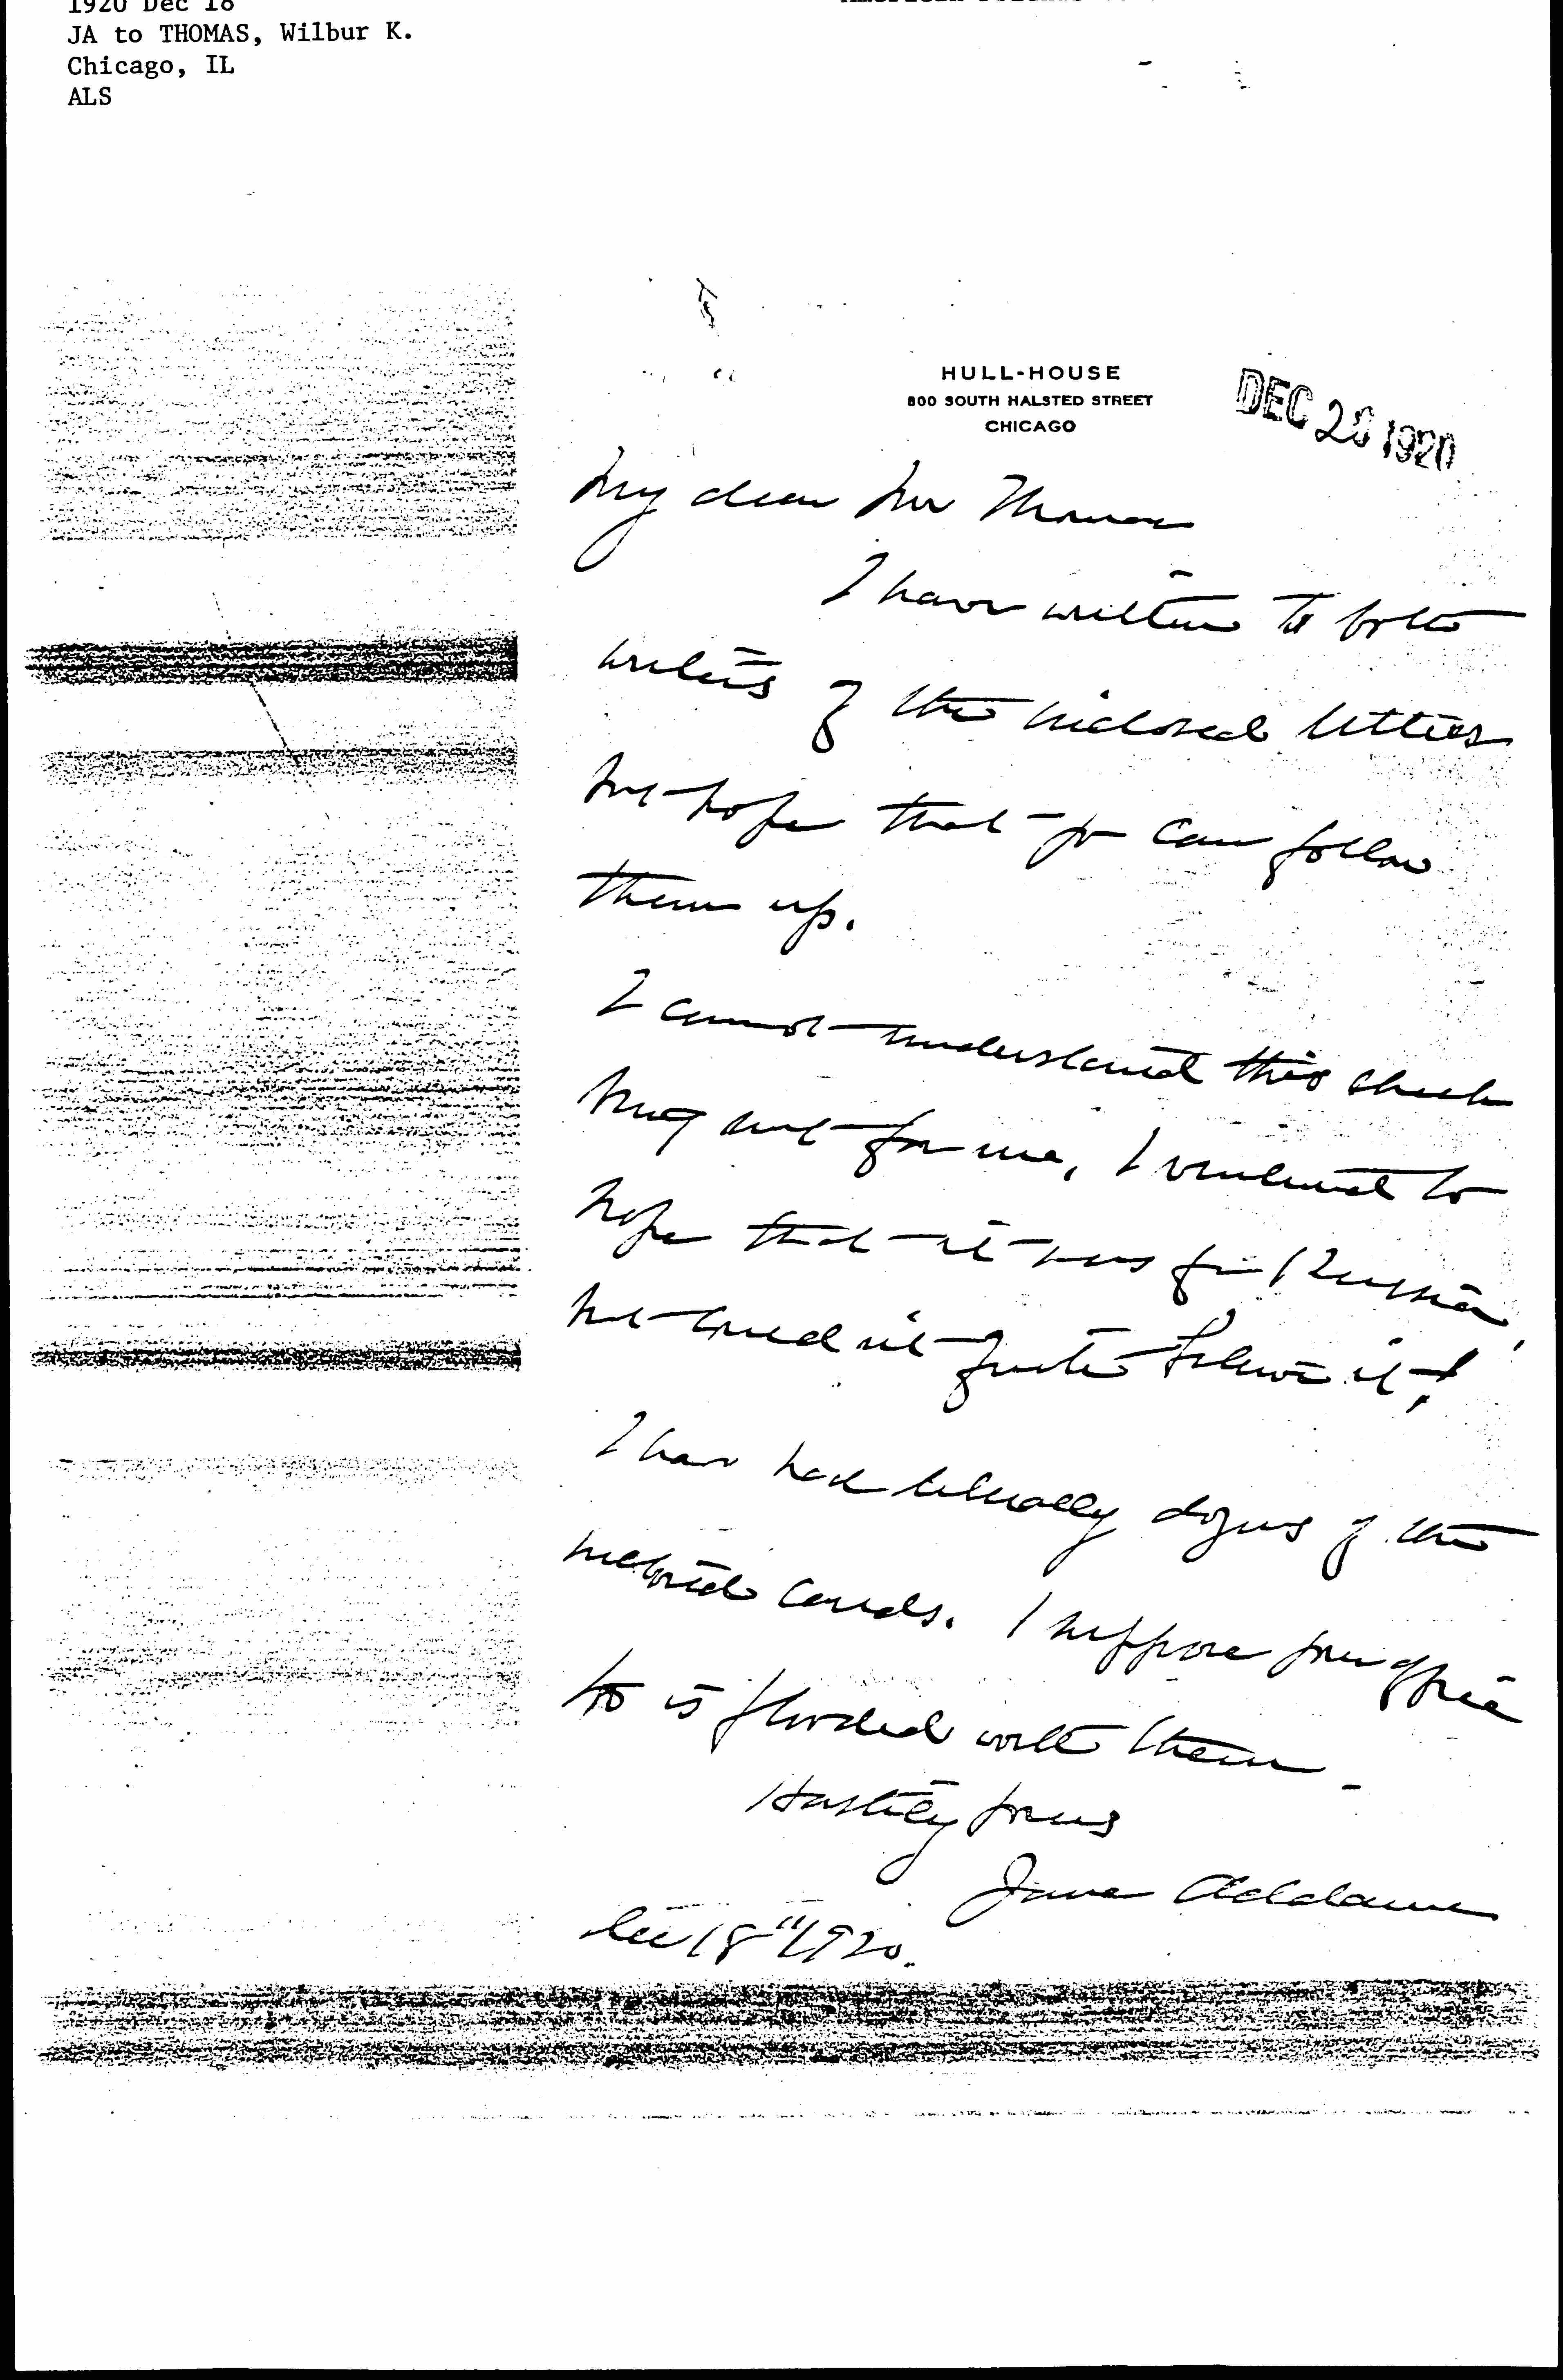 1920 Dec 18
JA to THOMAS, Wilbur K.
Chicago, IL
ALS
HULL-HOUSE
800 SOUTH HALSTED STREET
CHICAGO
DEC 20 1920
My dear Mr Thomas
I have written to both
writers of the inclosed letters
but hope that you can follow
them up.
I cannot understand this check
for me, I ventured to
hope that it was for Russia,
but could not quite believe it!
I have had literally dozens of the
inclosed cards. I suppose your office
too is flooded with them.
Hastily yours
Jane Addams
Dec 18" 1920.